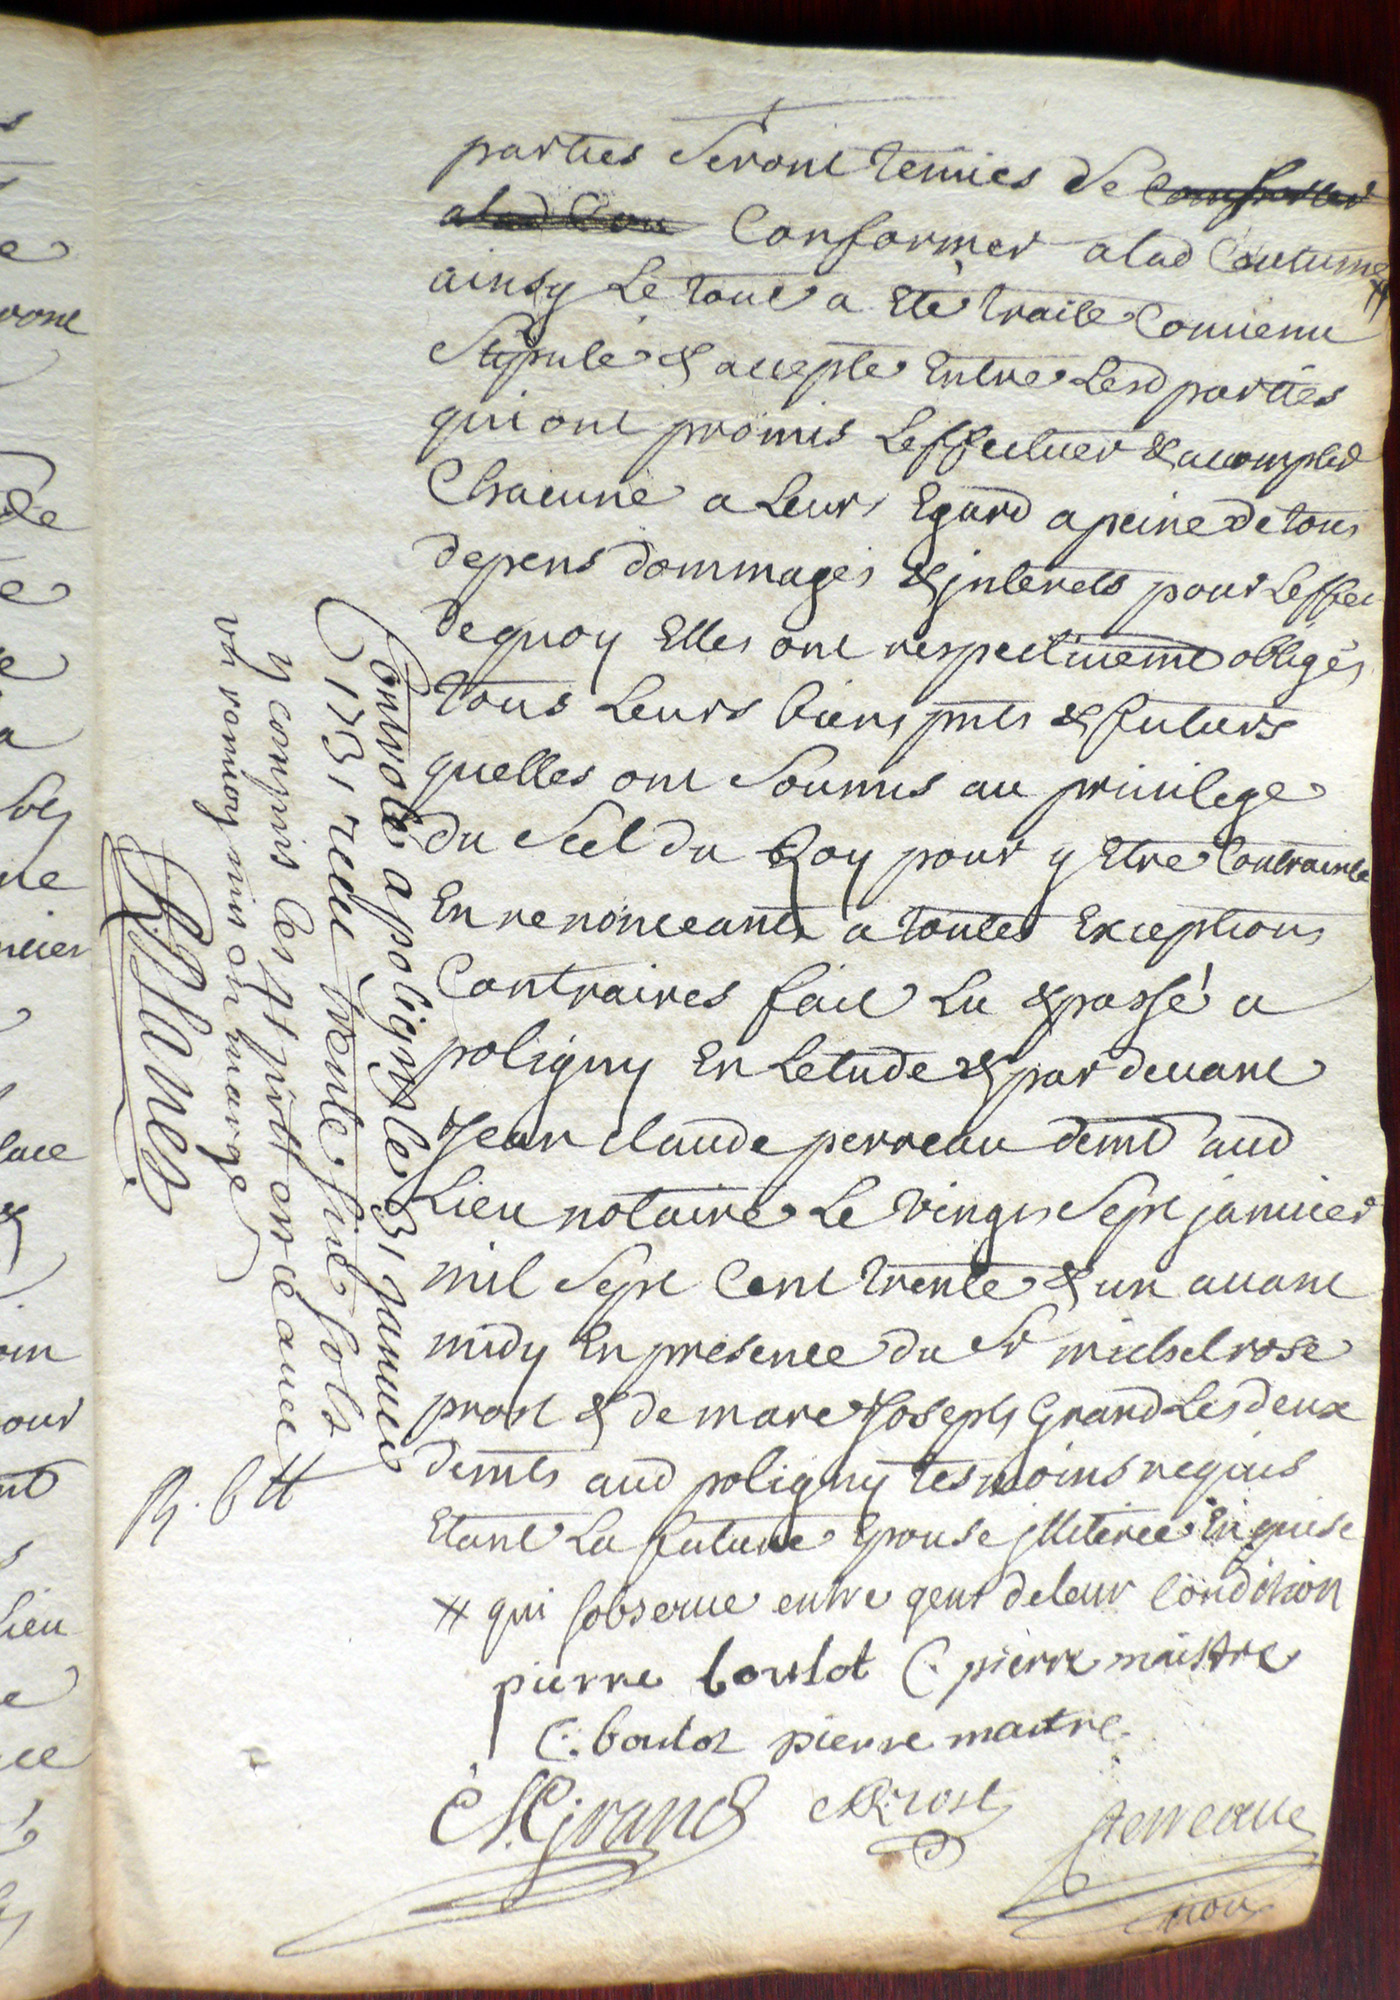 parties seront tenuës de
Conformer alad Coutume #
ainsy Le tout a Eté traité Convenu
Stipulé & accepté Entre Lesd parties
qui ont promis Leffectuer & accomplir
Chacune a Leurs Egard a peine de tous
depens dommages & jnterets pour Leffet
de quoy Elles ont respectivement obligés
tous Leurs biens pnts & futurs
quelles ont Soumis au privilege
du Scel du Roy pour y Etre Contrainte
En renonceant a toutes Exceptions
Contraires fait Lu & passé a
poligny En Letude & par devant
Jean Claude perreau demt aud
Lieu notaire Le vingt Sept janvier
mil Sept Cent trente & un avant
midy En presence du Sr michel rose
prost & de marc Joseph Grand Les deux
demts aud poligny tesmoins requis
Etant La future Epouse jlliterée Enquise
# qui sobserve entre gens de leur condition
pierre boulot C. pierre maistre
C. boulot pierre maitre
M. J. Grand MR. Prost perreau
not
Controlé a poligny le 31 janvier
1731 recu trente huit sols
y compris les
en marge
R. 6 tt